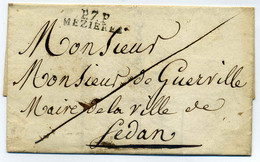 P.7.P
MEZIÈRES
Monsieur
Monsieur de Guerville
Maire de la ville de
Sedan